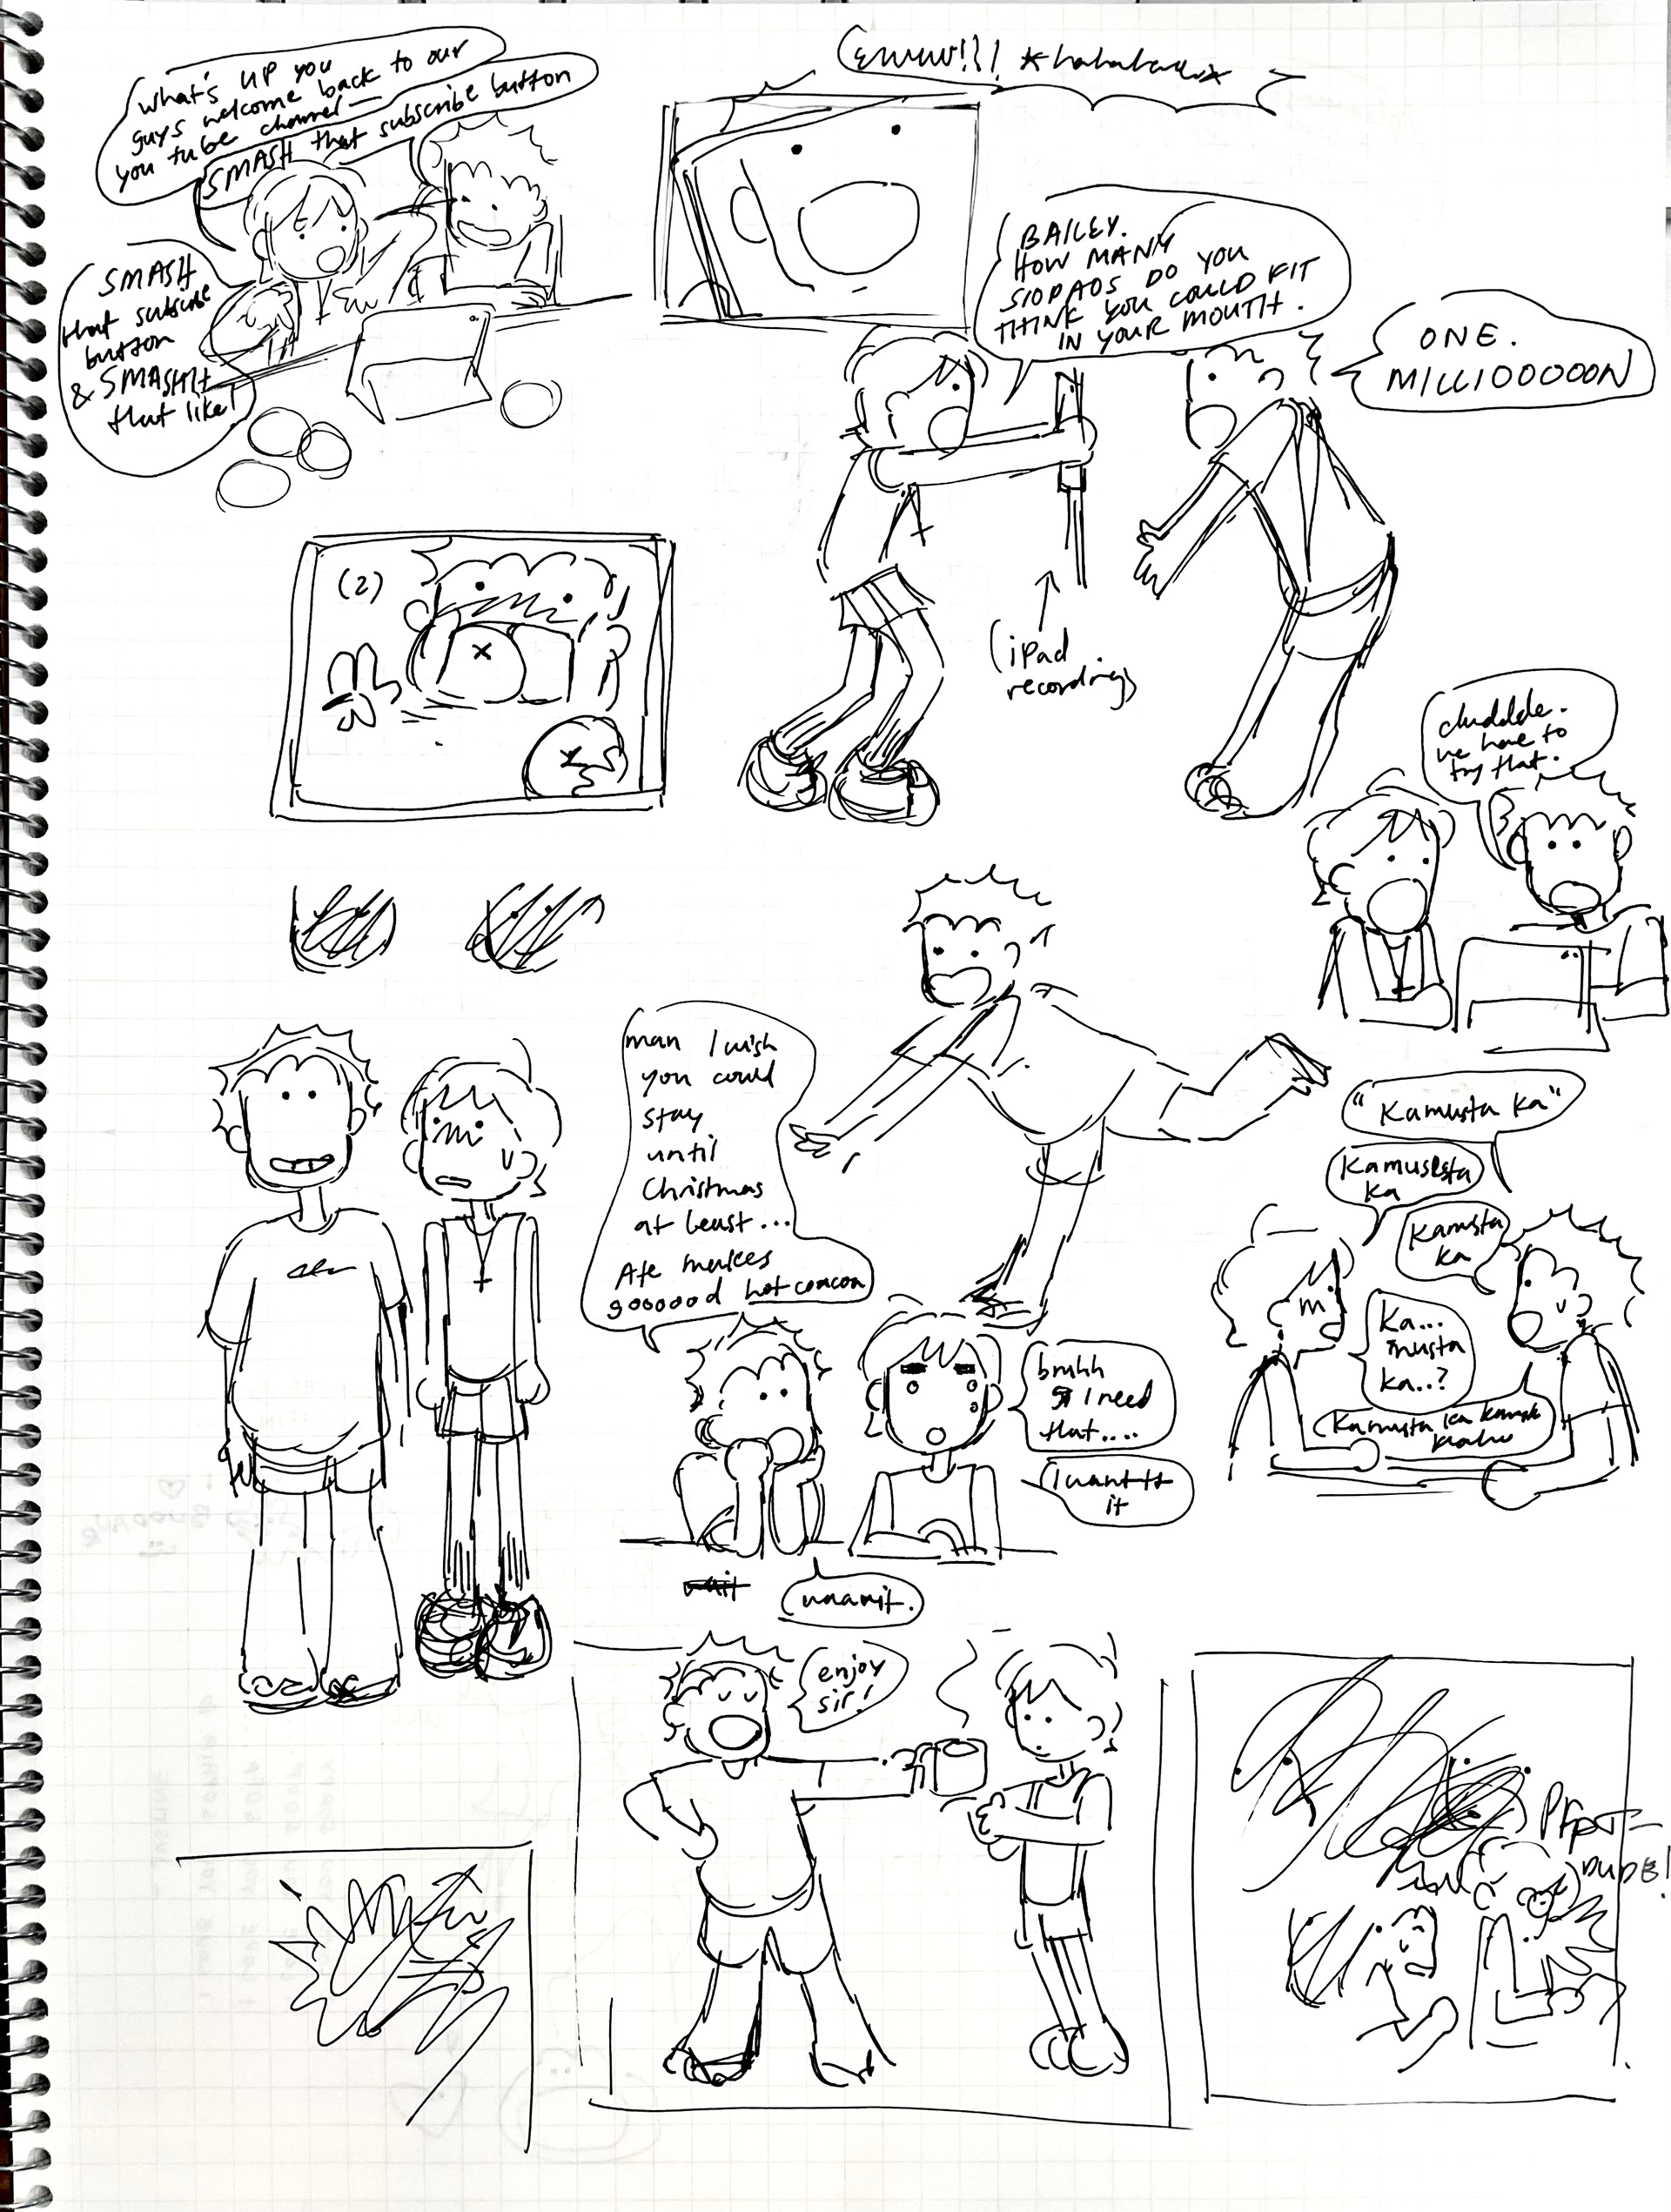 what's up you
guys welcome back to our
you tube channel —
SMASH that subscribe button
SMASH
that subscribe
button
& SMASH
that like!
Ewww!!! *hahahaha*
BAILEY.
HOW MANY
SIOPAOS DO YOU
THINK YOU COULD FIT
IN YOUR MOUTH.
ONE.
MILLIOOOOON
(2)
(iPad
recording)
duddde.
we have to
try that.
man I wish
you could
stay
until
Christmas
at least...
Ate makes
goooood hot cocoa
bruhh
I need
that....
I want
it
wait
waait.
"Kamusta ka"
Kamusta
ka
Kamusta
ka
Ka...
musta
ka..?
Kamusta ka
enjoy
sir!
DUDE!